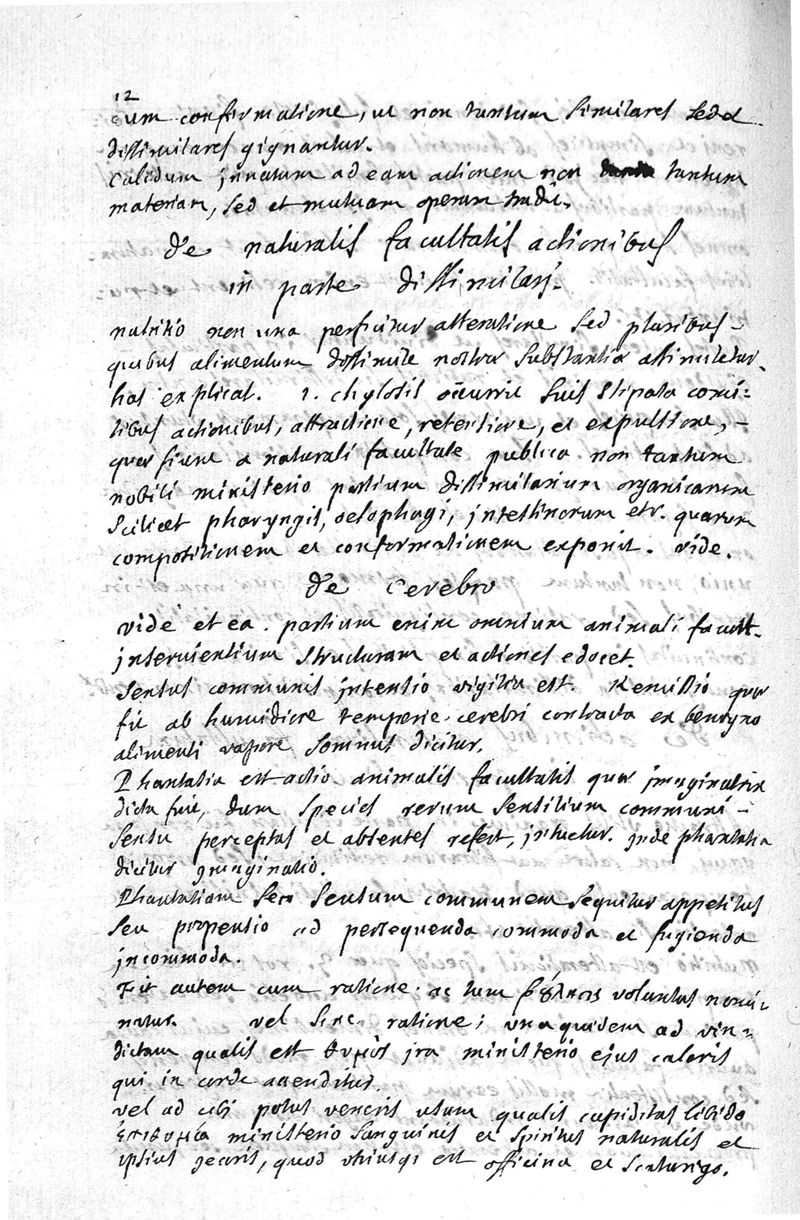 12
cum conformatione, ut non tantum similares sed &
dissimilares gignantur.
Calidum innatum ad eam actionem non tantum
materiam, sed et mutuam operam tradit.
de naturalis facultatis actionibus
in parte dissimilari.
nutritio non una perficitur alteratione sed pluribus
quibus alimentum dissimile nostræ substantiæ assimiletur.
has explicat. 1. chylosis occurrit suis stipata comi-
tibus actionibus, attractione, retentione, et expultione,
quæ fiunt a naturali facultate publica non tantum
nobili ministerio partium dissimilarium organicarum
scilicet pharyngis, oesophagi, intestinorum etc. quarum
compositionem et conformationem exponit. vide.
de cerebro
vide et ea. partium enim omnium animali facult.
intervientium structuram et actiones edocet.
Sensus communis intentio vigilia est. Remissio quæ
fit ab humidiore temperie cerebri contracta ex benigno
alimenti vapore somnus dicitur.
Phantasia est actio animalis facultatis quæ imaginatrix
dicta fuit, dum species rerum sensilium communi
sensu perceptas et absentes refert, intuetur. inde phantasia
dicitur imaginatio.
Phantasiam seu sensum communem sequitur appetitus
seu propensio ad persequenda commoda et fugienda
incommoda.
Fit autem cum ratione. ac tum βȣλησις voluntas nomi-
natur. vel sine ratione; una quidem ad vin-
dictam qualis est θυμὸς ira ministerio ejus caloris
qui in corde accenditur.
vel ad cibi potus veneris usum qualis cupiditas libido
ἐπιθυμία ministerio sanguinis et spiritus naturalis et
ipsius jecoris, quod utriusqi est officina et scaturigo.